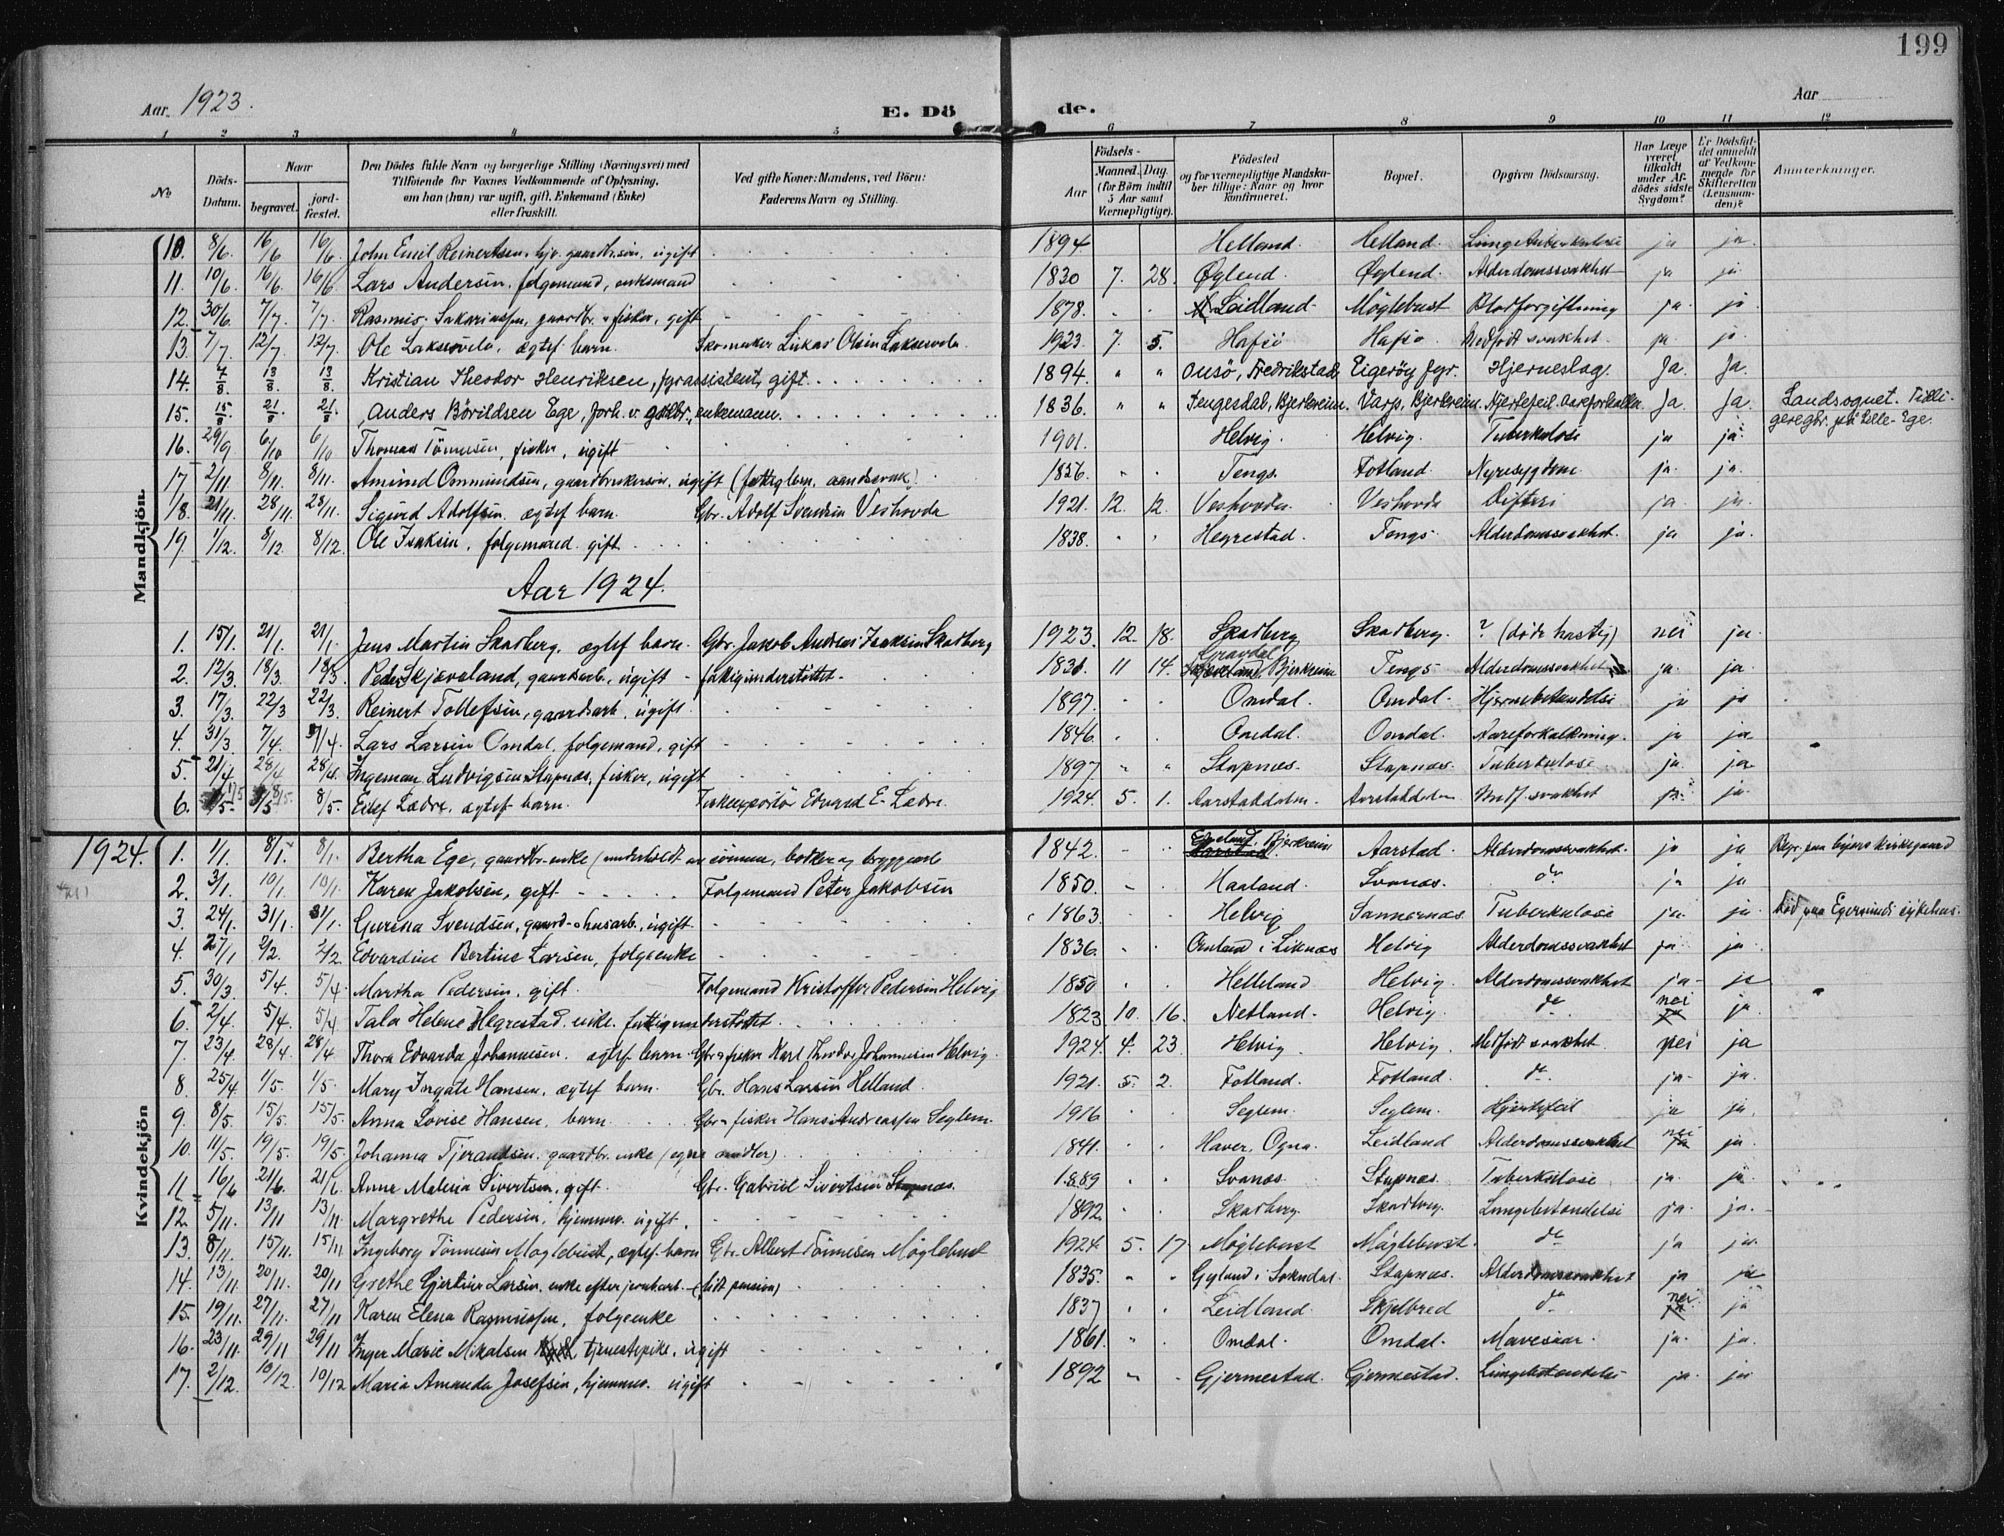 199
Aar 1923.
E. Dö de.
Aar
1 2 3 4 5 6 7 8 9 10 11 12
No
Döds-Datum.
Naar
begravet.
jord-fæstet.
Den Dödes fulde Navn og borgerlige Stilling (Næringsvei) med
Tilföiende for Voxnes Vedkommende af Oplysning,
om han (hun) var ugift, gift, Enkemand (Enke)
eller fraskilt.
Ved gifte Koner: Mandens, ved Börn:
Faderens Navn og Stilling.
Födsels-
Aar
Maaned. Dag.
(for Börn indtil
5 Aar samt
Værnepligtige).
Födested
og for værnepligtige Mandskaber tillige: Naar og hvor
konfirmeret.
Bopæl.
Opgiven Dödsaarsag.
Har Læge været tilkaldt under Afdödes sidste Sygdom?
Er Dödsfaldet anmeldt af Vedkommende for Skifteretten (Lensmanden)?
Anmerkninger.
Mandkjön.
10. 8/6 16/6 16/6 John Emil Reinertsen, gaardbr.sön, ugift 1894 Helland. Helland. Lungetuberkulose ja ja
11. 10/6 16/6 16/6 Lars Andersen, folgemand, enkemand 1830 7. 28. Øglend. Øglend. Alderdomssvakhet ja ja
12. 30/6 7/7 7/7 Rasmus Sakariassen, gaardbr. o fisker, gift 1878. Leidland. Möglebust Blodforgiftning ja. ja
13. 7/7 12/7 12/7 Ole Laksesvela, ægtef barn. Skomaker Lukas Olsen Laksesvela 1923 7. 5. Hafsö Hafsö Medfödt svakhet. ja ja
14. 4/8 13/8 13/8 Kristian Theodor Henriksen, fyrassistent, gift. 1894. " " Onsö, Fredrikstad Eigeröy fyr. Hjerneslag. Ja. Ja.
15. 15/8 21/8 21/8 Anders Börildsen Ege, forh. v. gdbr., enkemann. 1836. " " Tengesdal, Bjerkreim. Varp, Bjerkreim. Hjertefeil. Aareforkalkn. Ja. Ja. Landsognet. Tidligeregbr. på Lille-Ege.
16. 29/9 6/10 6/10 Thomas Tönnesen, fisker, ugift 1901. Helvig. Helvig. Tuberkulose ja ja
17. 2/11 8/11. 8/11. Amund Ommundsen, gaardbrukersön, ugift (fattiglem, aandssvak). 1856. Tengs. Fotland. Nyresygdom. ja. ja.
18. 21/11. 28/11. 28/11. Sigurd Adolfsen. ægtef barn. Gbr. Adolf Svendsen Veshovda 1921. 12. 12. Veshovda Veshovda Difteri ja ja.
19. 1/12. 8/12 8/12. Ole Isaksen, folgemand. gift. 1838. Hegrestad. Tengs. Alderdomssvakhet. ja ja.
Aar 1924.
1. 15/1. 21/1. 21/1. Jens Martin Skadberg, ægtef barn. Gbr. Jakob Andreas Isaksen Skadberg 1923. 12. 18. Skadberg Skadberg. ? (döde hastig) nei ja.
2. 12/3. 18/3. 18/3. Peder Skjæveland, gaardsarb., ugift - fattigunderstöttet. 1831 11 14. Gravdal Bjerkreim Tengs Alderdomssvakhet ja. ja.
3. 17/3. 22/3 22/3. Reinert Tollefsen, gaardsarb., ugift. 1897. Omdal. Omdal. Hjernebetændelse ja ja.
4. 31/3. 7/4. 7/4. Lars Larsen Omdal, folgemand, gift 1846. Omdal. Omdal. Aareforkalkning. ja ja.
5. 21/4 28/4 28/4. Ingeman Ludvigsen Stapnæs, fisker, ugift 1897 " " Stapnæs. Stapnæs. Tuberkulose ja. ja.
6. 1/5 8/5. 8/5. Eilef Lædre, ægtef barn. Fiskeexportör Edvard E. Lædre. 1924. 5. 1. Aarstaddalen. Aarstaddalen Medf. svakhet ja. ja.
1924.
Kvindekjön
1. 1/1. 8/1. 8/1. Bertha Ege, gaardbr. enke (underholdt av sönnen, bödker og byggmester 1842. Bjerkreim Aarstad. Alderdomssvakhet. ja ja Begr. paa byens kirkegaard
2. 3/1. 10/1. 10/1. Karen Jakobsen, gift Folgemand Peter Jakobsen 1850. Haaland. Svanæs. do ja ja
3. 24/1. 31/1. 31/1. Gurena Svendsen, gaard- o husarb., ugift. 1863. Helvig Sannarnæs. Tuberkulose ja. ja. Död paa Egersunds sykehus.
4. 27/1 2/2. 2/2 Edvardine Bertine Larsen, folgeenke 1836. Omland i Liknæs Helvig Alderdomssvakhet ja. ja.
5. 30/3 5/4. 5/4. Martha Pedersen, gift. Folgemand Kristoffer Pedersen Helvig 1850 Helleland Helvig. Alderdomssvakhet ja ja
6. 2/4. 5/4. 5/4 Tala Helene Hegrestad, enke. fattigunderstöttet 1823 10. 16. Netland Helvig. do nei ja.
7. 23/4. 28/4. 28/4. Thora Edvarda Johannesen. ægtef barn. Gbr o fisker Karl Theodor Johannesen Helvig. 1924. 4. 23. Helvig. Helvig. Medfödt svakhet. nei ja
8. 25/4 1/5. 1/5. Mary Hansen, ægtef barn. Gbr. Hans Larsen Helland. 1921. 5. 2. Fotland. Fotland. do. ja. ja.
9. 8/5. 15/5. 15/5 Anna Lovise Hansen, barn. Gbr o fisker Hans Andreassen Seglem. 1916 Seglem. Seglem. Hjertefeil ja ja.
10. 11/5. 19/5. 19/5. Johanna Tjerandsen, gaardbr. enke (egne midler). 1841. Haver, Ogna. Leidland Alderdomssvakhet nei ja.
11. 16/6 21/6. 21/6 Anne Malena Sivertsen, gift. Gbr. Gabriel Sivertsen Stapnæs. 1889 Svanæs. Stapnæs. Tuberkulose ja. ja.
12. 5/11. 13/11 13/11. Margrethe Pedersen, hjemmev. ugift. 1892. Skadberg. Skadberg. Lungebetændelse ja. ja.
13. 8/11. 15/11. 15/11 Ingeborg Tönnesen Möglebust, ægtef. barn Gbr. Albert Tönnesen Möglebust 1924. 5. 17. Möglebust. Möglebust. do ja ja.
14. 13/11. 20/11. 20/11 Grethe Gjertine Larsen, enke efter jernb.arb. (litt pension) 1835. " " Gyland i Sokndal. Stapnæs. Alderdomssvakhet ja ja
15. 19/11. 27/11. 27/11 Karen Elena Rasmussen, folgeenke 1837 Leidland Skjelbred do nei. ja
16. 23/11. 29/11 29/11 Inger Marie Mikalsen tjenestepike, ugift 1861. Omdal. Omdal. Mavesaar. ja. ja.
17. 2/12. 10/12. 10/12 Maria Amanda Josefsen, hjemmev. ugift 1892 Gjermestad. Gjermestad. Lungebetændelse ja. ja